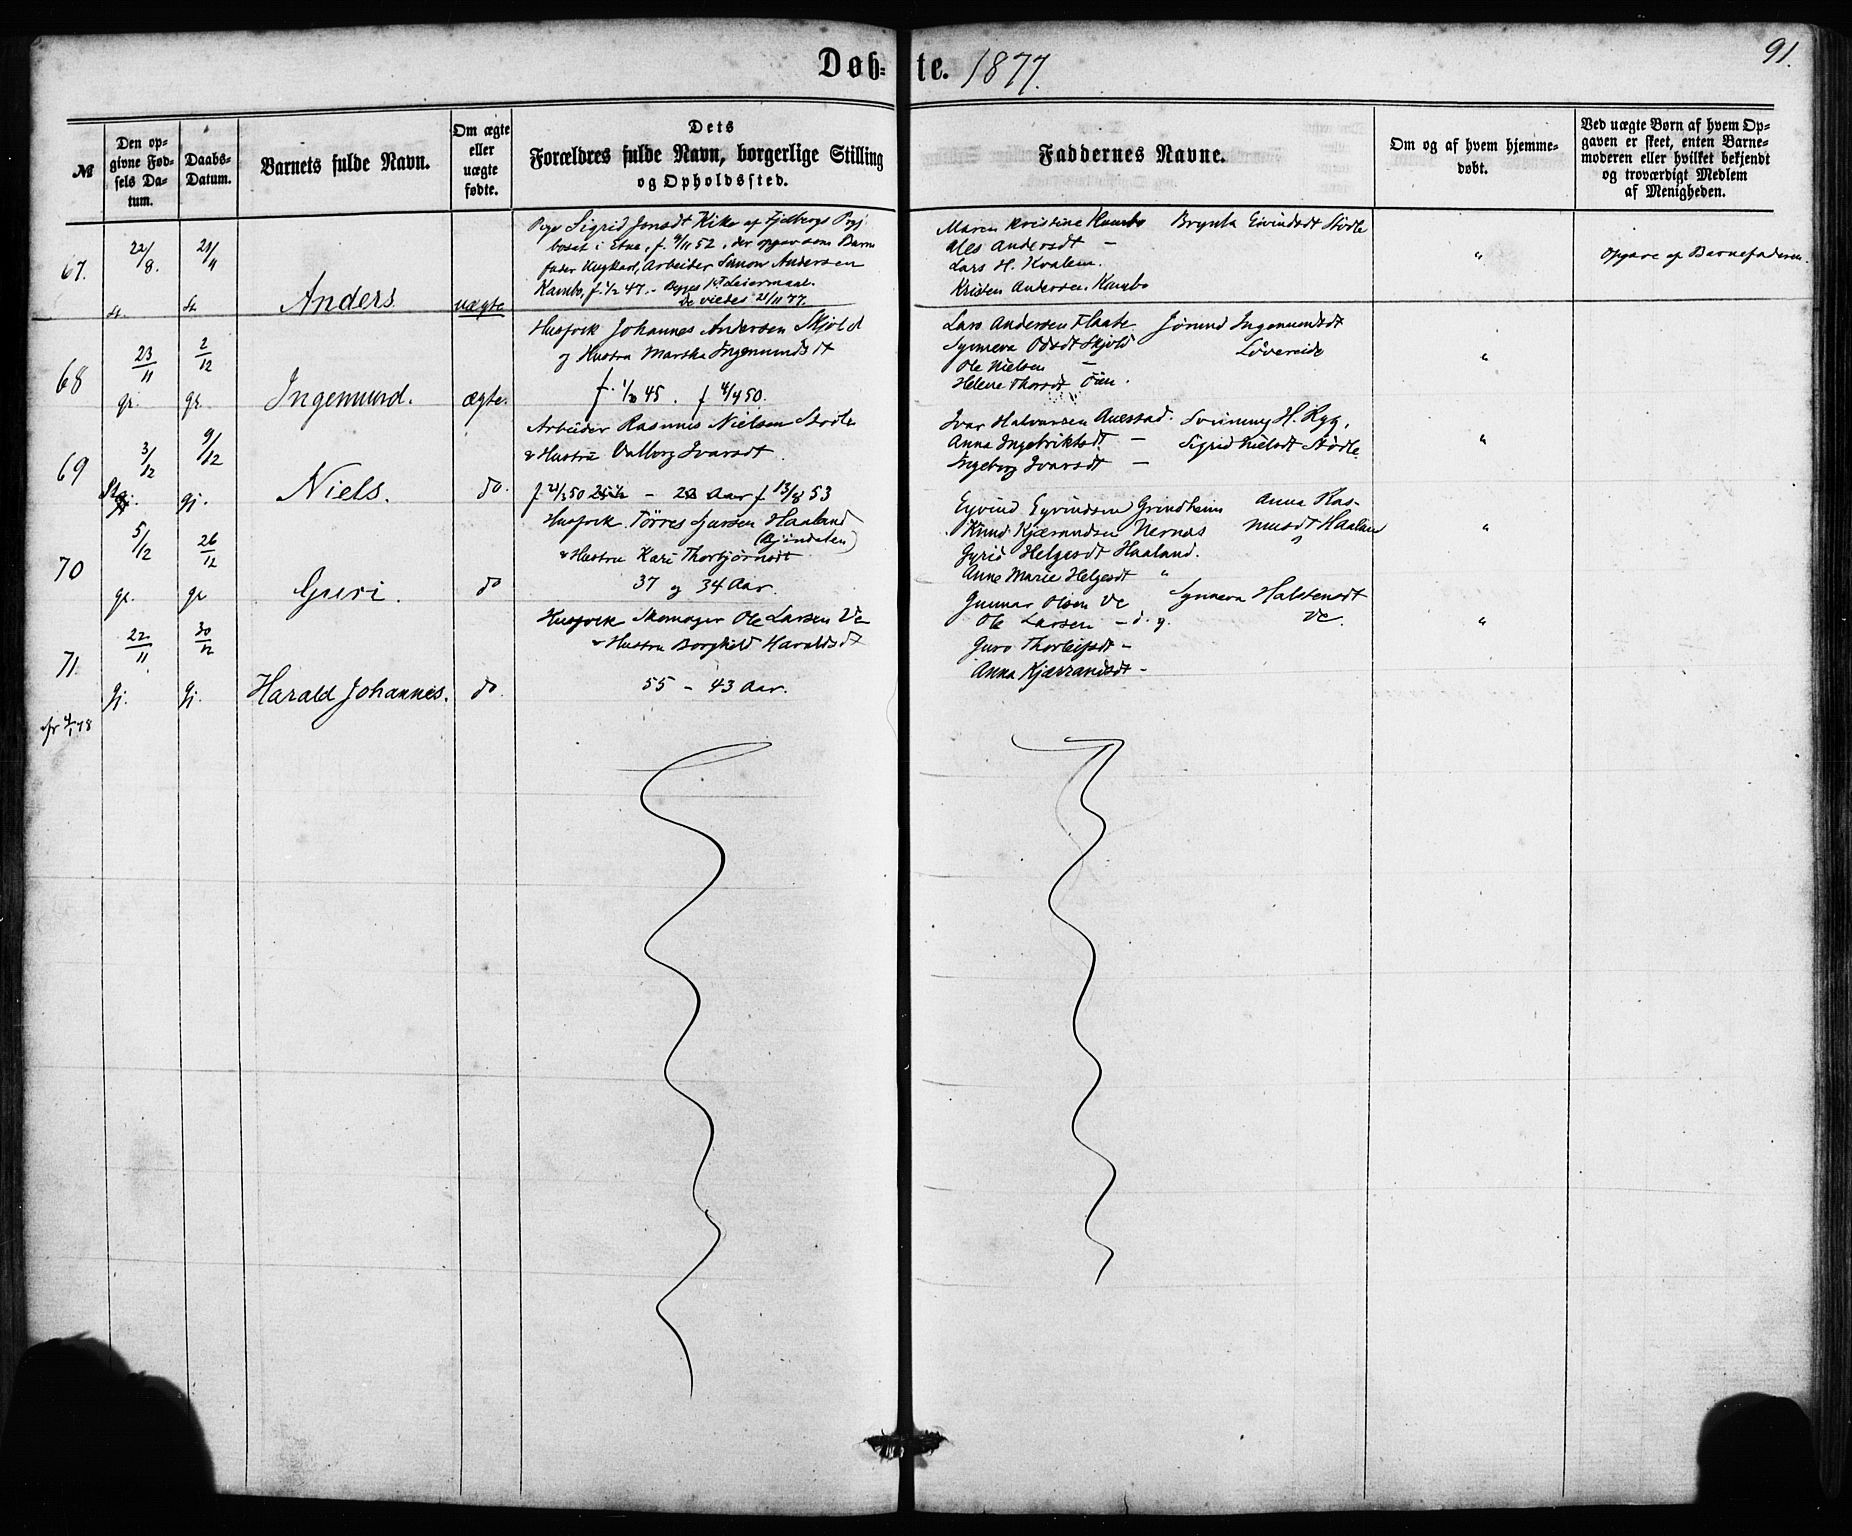 Døb=te. 1877.
91.
№
Den op=
givne Fød=
sels Da=
tum.
Daabs=
Datum.
Barnets fulde Navn.
Om ægte
eller
uægte
fødte.
Dets
Forældres fulde Navn, borgerlige Stilling
og Opholdssted.
Faddernes Navne.
Om og af hvem hjemme=
døbt.
Ved uægte Børn af hvem Op=
gaven er skeet, enten Barne=
moderen eller hvilket bekjendt
og troværdigt Medlem
af Menigheden.
67.
22/8.
21/11
Anders
uægte
Pige Sigrid Jonsdt Kike af Fjelbergs Prgj
boset i Etne, f. 9/11 52, der opgav som Barne
fader Ungkarl, Arbeider Simon Andersen
Kambo, f. 1/2 47. - Leiermaal.
De viedes 21/11 77.
Maren Kristine Kambo Brynla Eivindsdt Stødle
Ales Andersdt -
Lars H. Kvalem.
Kristen Andersen Kambo
"
Opgave af Barnefaderen.
68
23/11
2/12
gr.
gr.
Ingemund.
ægte.
Husfolk Johannes Andersen Skjold
og Hustru Martha Ingemundsdt
f. 1/8 45. f 4/4 50.
Lars Andersen Flaate Jorund Ingemundsdt
Synneva Odsdt Skjold Løvereide
Ole Nielsen -
Helene Thorsdt Øien.
"
69
3/12
9/12
gj.
Niels.
do.
Arbeider Rasmus Nielsen Stødle
& Hustru Valborg Ivarsdt
f. 21/3 50 - 23 Aar f 13/8 53
Ivar Halvorsen Auestad. Svinung H. Ryg,
Anna Ingebriktsdt. - Sigrid Nielsdt Stødle
Ingeborg Ivarsdt -
"
70
5/12
26/12
gr.
gr
Guri.
do
Husfolk Tørres Larsen Haaland
& Hustru Kari Thorbjørnsdt
37 og 34 Aar.
Eyvind Eyvindsen Grindheim Anna Ras-
Knud Kjærandsen Nernæs musdt Haaland
Gyrid Helgesdt Haaland.
Anne Marie Helgesdt "
"
71.
22/11
30/12
gj.
gj.
Harald Johannes.
do
Husfolk Skomager Ole Larsen Ve
& Hustru Borghild Haraldsdt
55 - 43 Aar.
Gunnar Olsen Ve Synneva Halstensdt
Ole Larsen - d. y. Ve.
Guro Thorleifsdt -
Anna Kjærrandsdt -
"